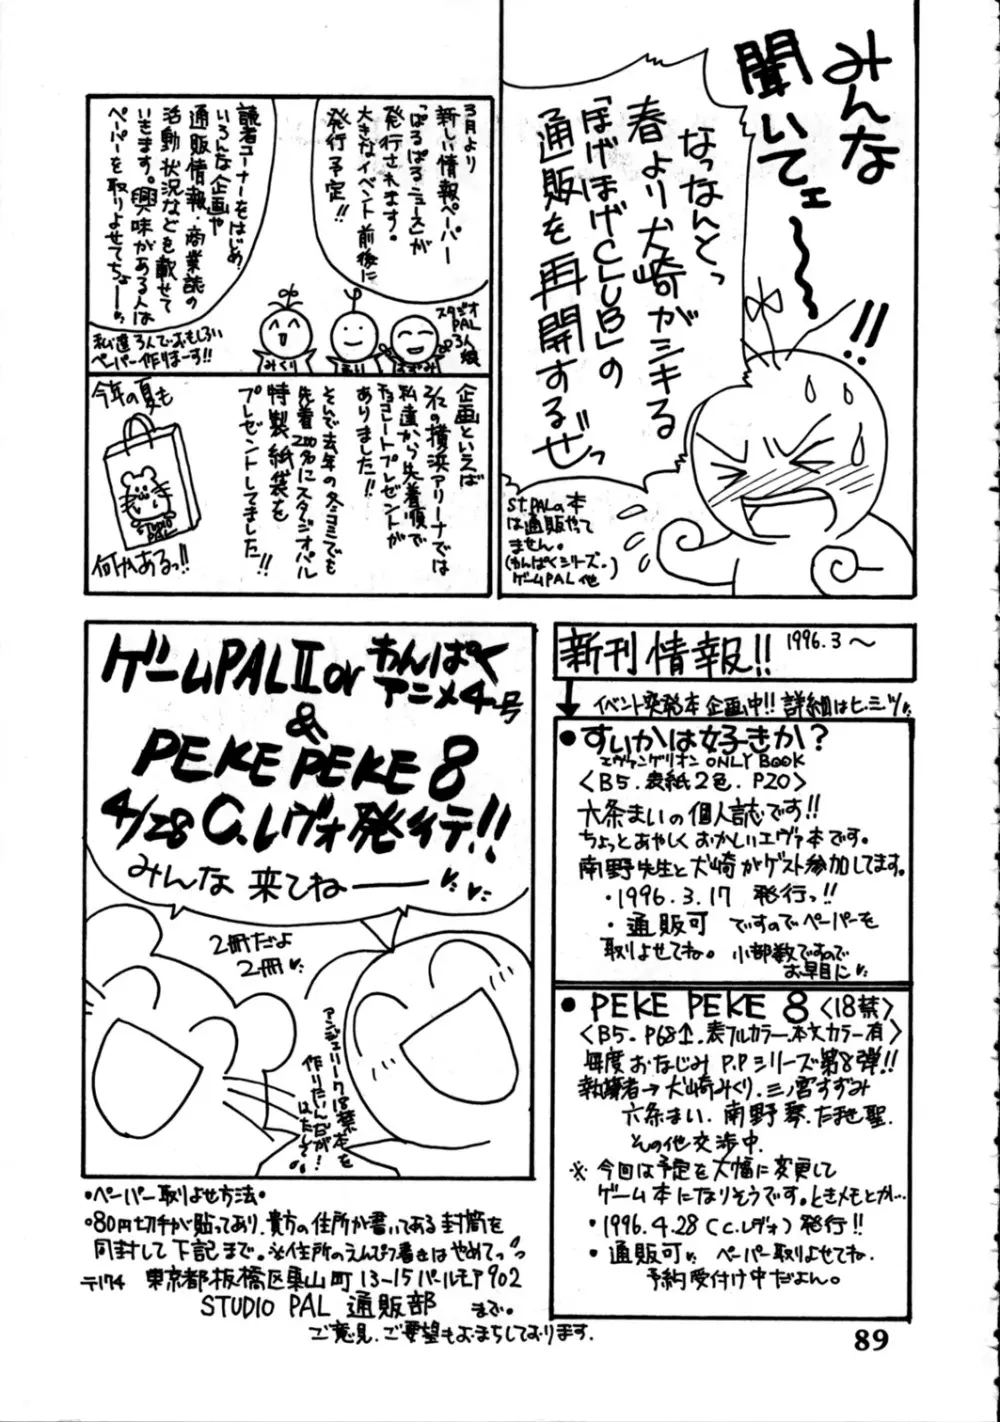 みんな
聞いてェ〜〜
!!
なっなんとっ
春より犬崎がシキる
「ほげほげCLUB」の
通販を再開するぜっ
ST.PALの本
は通販やって
ません。
(わんぱくシリーズ。)
ゲームPAL他
3月より
新しい情報ペーパー
「ぱるぱるニュース」が
発行されます。
大きなイベント前後に
発行予定!!
読者コーナーをはじめ、
いろんな企画や
通販情報・商業誌の
活動状況などを載せて
いきます。興味がある人は
ペーパーを取りよせてちょーっ
スタジオ
PAL
3人娘
みくり
私達3人でおもしろい
ペーパー作りまーす!!
企画といえば
3/2の横浜アリーナでは
私達から先着順で
チョコレートプレゼントが
ありました!!
そんで去年の冬コミでも
先着200名にスタジオパル
特製紙袋を
プレゼントしてました!!
今年の夏も
STUDIO
PAL
何かあるっ!!
ゲームPALⅡor わんぱく
アニメ4号
&
PEKE PEKE 8
4/28 C.レヴォ発行デ!!
みんな来てね――
2冊だよ
2冊
アンジェリーク18禁本を
作りたいんだが!
はたして。
新刊情報!! 1996.3〜
イベント突発本企画中!! 詳細はヒ・ミ・ツ
●すいかは好きか?
エヴァンゲリオン ONLY BOOK
〈B5.表紙2色.P20〉
六条まいの個人誌です!!
ちょっとあやしくおかしいエヴァ本です。
南野先生と犬崎がゲスト参加してます。
・1996.3.17 発行っ!!
・通販可 ですのでペーパーを
取りよせてね。小部数ですので
お早目に
●PEKE PEKE 8〈18禁〉
〈B5.P68↑.表フルカラー.本文カラー有〉
毎度おなじみP.Pシリーズ第8弾!!
執筆者→犬崎みくり.三ノ宮すずみ
六条まい.南野琴.たませ聖.
その他交渉中.
※今回は予定を大幅に変更して
ゲーム本になりそうです。ときメモとか…
・1996.4.28(C.レヴォ)発行!!
・通販可 ペーパー取りよせてね.
予約受付け中だよん。
・ペーパー取りよせ方法・
◦80円切手が貼ってあり.貴方の住所が書いてある封筒を
同封して下記まで。※住所のえんぴつ書きはやめてっ
〒174 東京都板橋区東山町13-15パールモア902
STUDIO PAL 通販部 まで。
ご意見.ご要望もおまちしております.
89